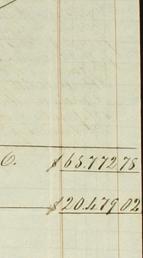 6. $65.772 78
$20.479 02